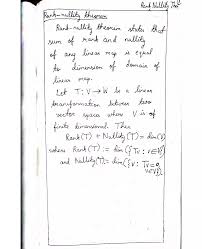 Rank Nullity Th
Rank-nullity theorem
Rank-nullity theorem states that
sum of rank and nullity
of any linear map is equal
to dimension of domain of
linear map.
Let T: V → W be a linear
transformation between two
vector space where V is of
finite dimensional. Then
Rank(T) + Nullity(T) = dim(V)
where Rank(T) := dim({Tv : v∈V})
and Nullity(T) := dim({v : Tv=0,
v∈V})